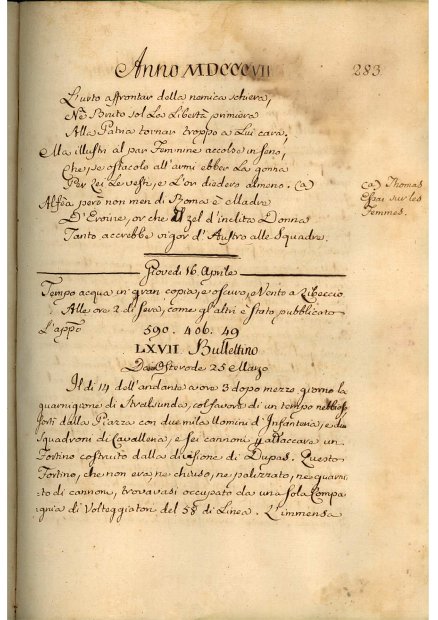 Anno MDCCCVII
283
L'urto affrontar della nemica schiera,
Nè Bruto sol La Libertà primiera
Alla Patria tornar troppo a Lui cara;
Ma illustri al par Femmine accolse in seno,
Che, se ostacolo all'armi ebber La gonna
Per Lei Le vesti, e L'or diedero almeno. (a)
(a) Thomas
Essai sur les
Femmes.
Alfèa però non men di Roma è Madre
D'Eroine, or che zel d'inclita Donna
Tanto accrebbe vigor d'Austro alle Squadre.
Giovedì 16 Aprile
Tempo acqua in gran copia, e oscuro, e Vento a Libeccio.
Alle ore 2 di sera, come gl'altri è stato pubblicato
L'app.º
590. 406. 49
LXVII Bullettino
Da Osterode 25 Marzo
Il dì 14 dell'andante a ore 3 dopo mezzo giorno la
guarnigione di Stralsunda, col favore di un tempo nebbioso
sortì dalla Piazza con due mila Uomini d'Infanteria, e due
Squadroni di Cavalleria, e sei cannoni p. attaccare un
Fortino costruito dalla divisione di Dupas. Questo
Fortino, che non era, ne chiuso, ne palizzato, ne guarni
to di cannoni, trovavasi occupato da una sola Compa
gnia di Volteggiatori del 58 di Linea. L'immensa